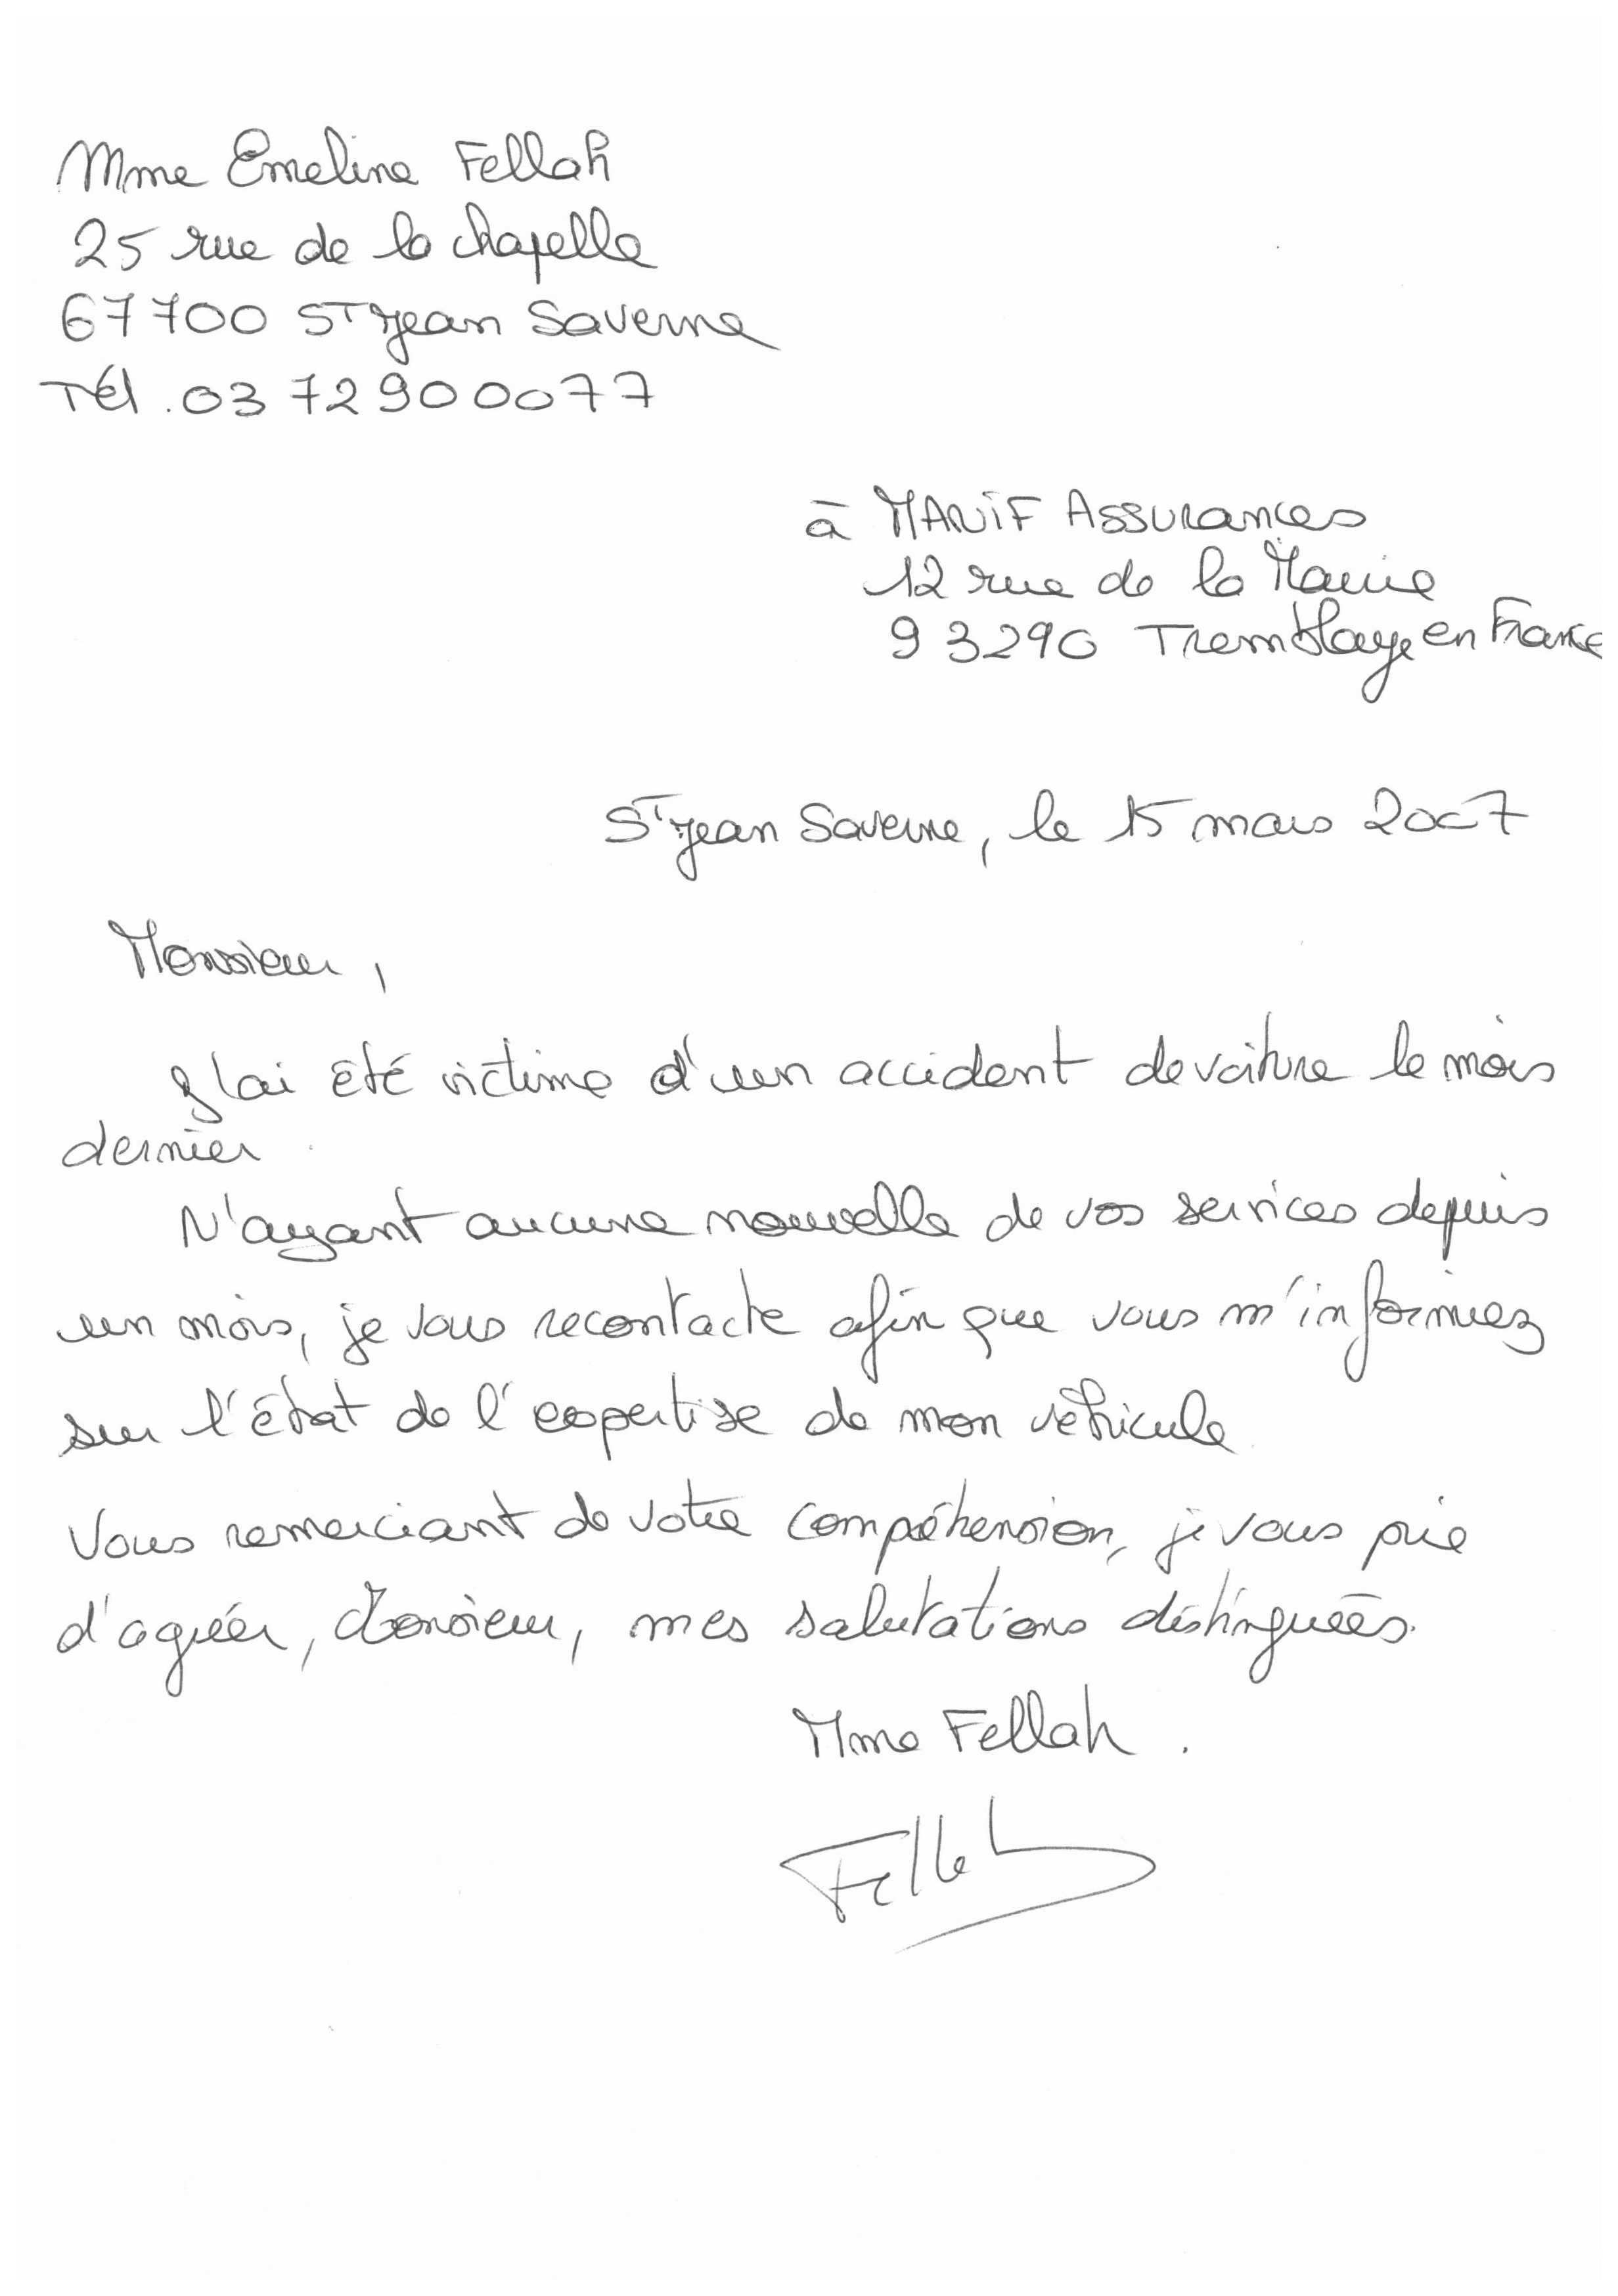 Mme Emeline Fellah
25 rue de la chapelle
67700 St Jean Saverne
Tél. 03 72 90 00 77
à MANIF Assurances
12 rue de la Mairie
93290 Tremblaye en France
St Jean Saverne, le 15 mars 2007
Monsieur,
J'ai été victime d'un accident de voiture le mois
dernier.
N'ayant aucune nouvelle de vos services depuis
un mois, je vous recontacte afin que vous m'informiez
sur l'état de l'expertise de mon véhicule.
Vous remerciant de votre compréhension, je vous prie
d'agréer, Monsieur, mes salutations distinguées.
Mme Fellah.
Fellah